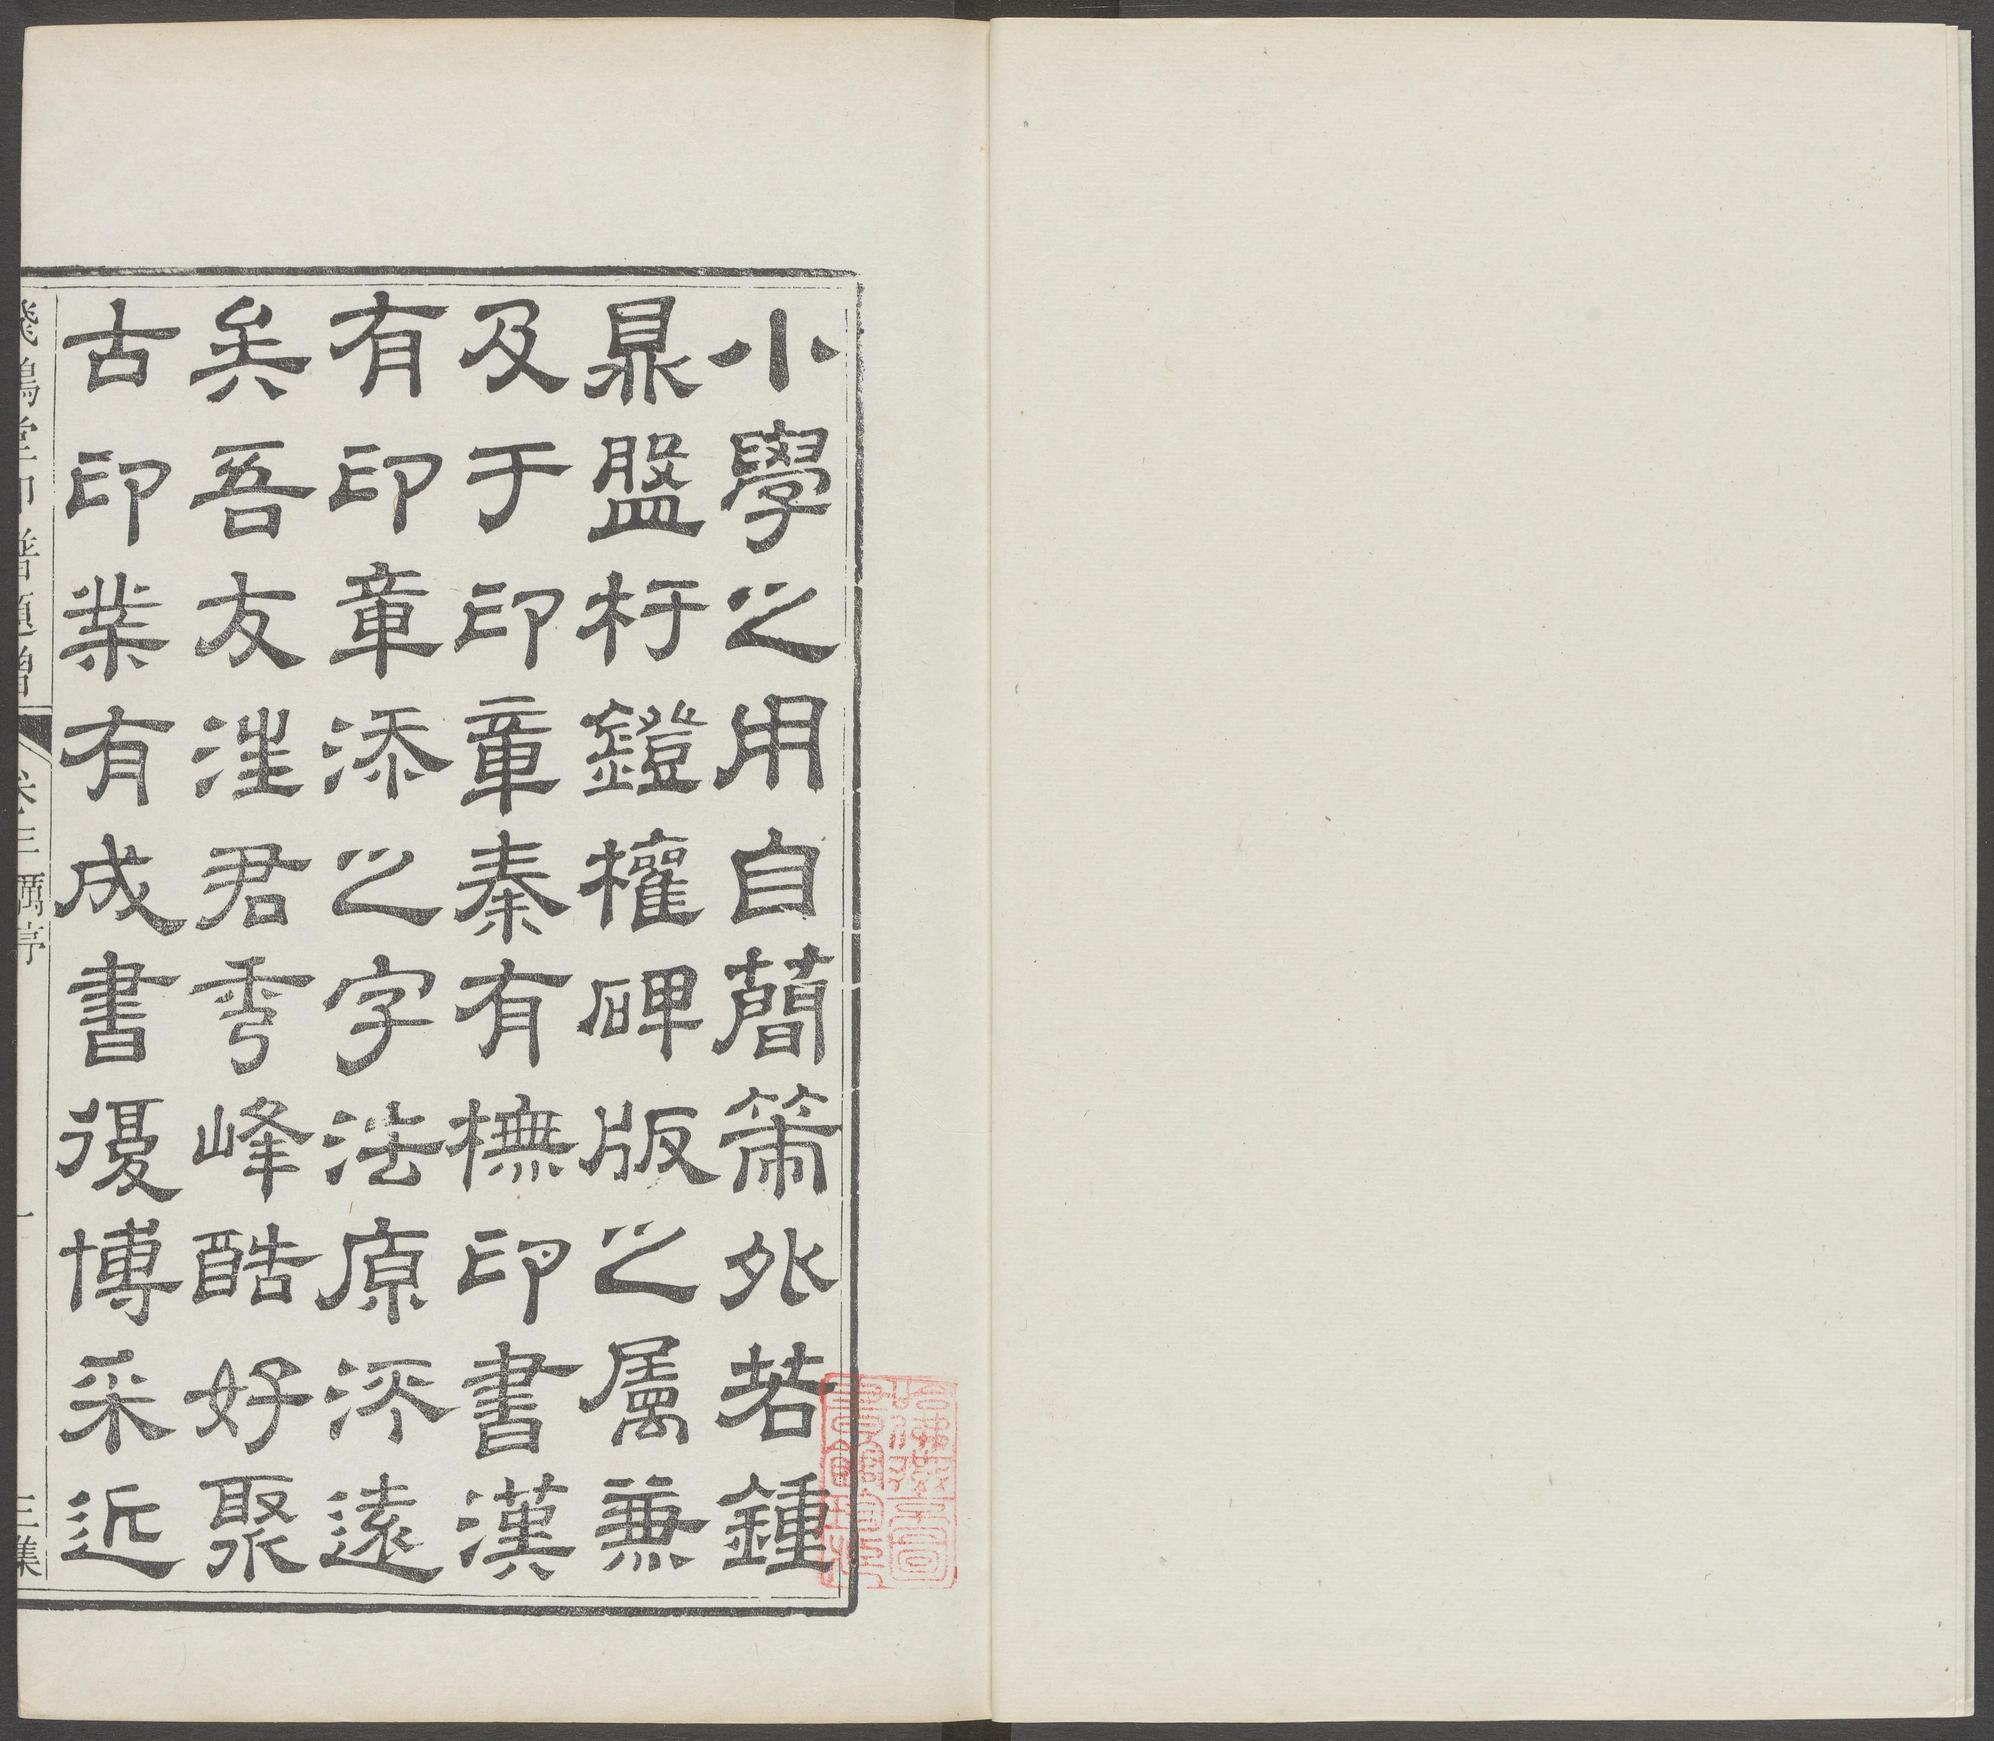 小學之用自簡筞外若鍾
鼎盤杅鐙權碑版之屬兼
及于印章秦有橅印書漢
有印章添之字法原深遠
矣吾友汪君秀峰酷好聚
古印業有成書復博采近
飛鴻堂印譜題贈 卷三 厲亭 一 三集